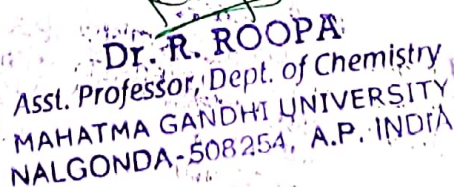 Dr. R. ROOPA
Asst. Professor, Dept. of Chemistry
MAHATMA GANDHI UNIVERSITY
NALGONDA-508254, A.P. INDIA